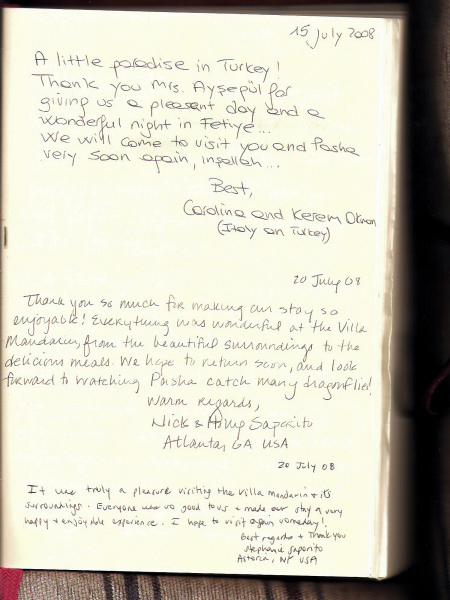 15 July 2008
A little paradise in Turkey!
Thank you Mrs. Ayşepül for
giving us a pleasent day and a
wonderful night in Fetiye...
We will come to visit you and Pasha
very soon again, inşallah...
Best,
Carolina and Kerem
(Italy an Turkey)
20 July 08
Thank you so much for making our stay so
enjoyable! Everything was wonderful at the Villa
Mandarin, from the beautiful surroundings to the
delicious meals. We hope to return soon, and look
forward to watching Pasha catch many dragonflies!
Warm regards,
Nick & Amy Saporito
Atlanta, GA USA
20 July 08
It was truly a pleasure visiting the Villa Mandarin + its
surroundings. Everyone was so good to us + made our stay a very
happy + enjoyable experience. I hope to visit again someday!
Best regards + Thank you
Stephanie Saporito
Astoria, NY USA